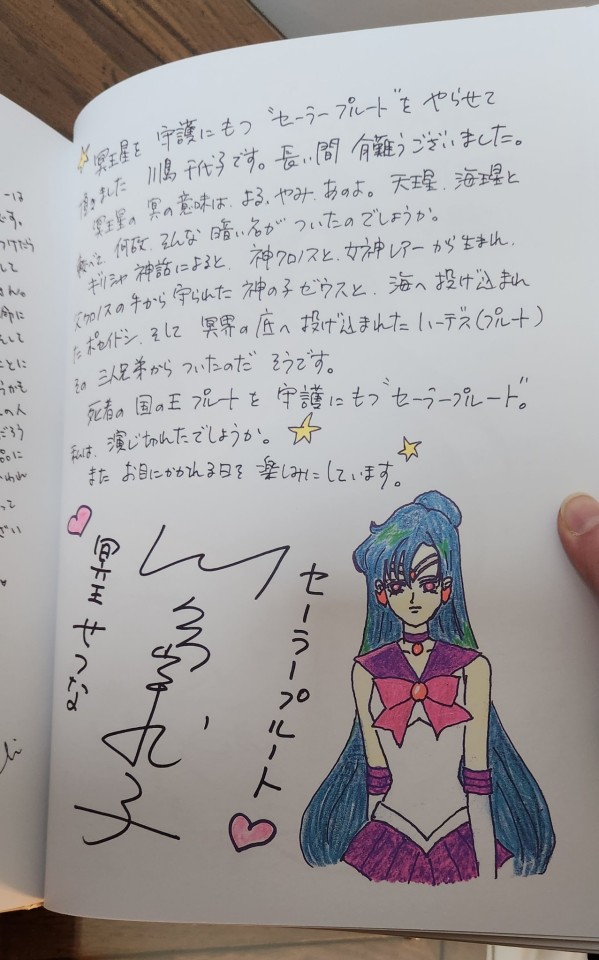 冥王星を 守護にもつ "セーラープルート" を やらせて
頂きました 川島 千代子です。長い間 有難うございました。
冥王星の 冥の意味は、よる、やみ、あのよ。天王星、海王星と
比べて、何故、そんな 暗い名が ついたのでしょうか。
ギリシャ 神話によると、神クロノスと、女神レアーから生まれ、
父クロノスの手から 守られた 神の子ゼウスと、海へ投げ込まれ
たポセイドン、そして 冥界の底へ投げ込まれたハーデス(プルート)
その 三人兄弟から ついたのだ そうです。
死者の 国の王 プルートを 守護にもつ "セーラープルート"。
私は、演じ切れたでしょうか。
また お目にかかれる日を 楽しみにしています。
セーラープルート
川島千代子
冥王せつな